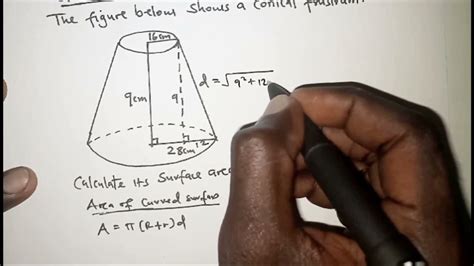 The figure below shows a conical frustrum.
16cm
9cm
9
d = √9² + 12
28cm
12
Calculate its surface area
Area of curved surface
A = π(R+r)d